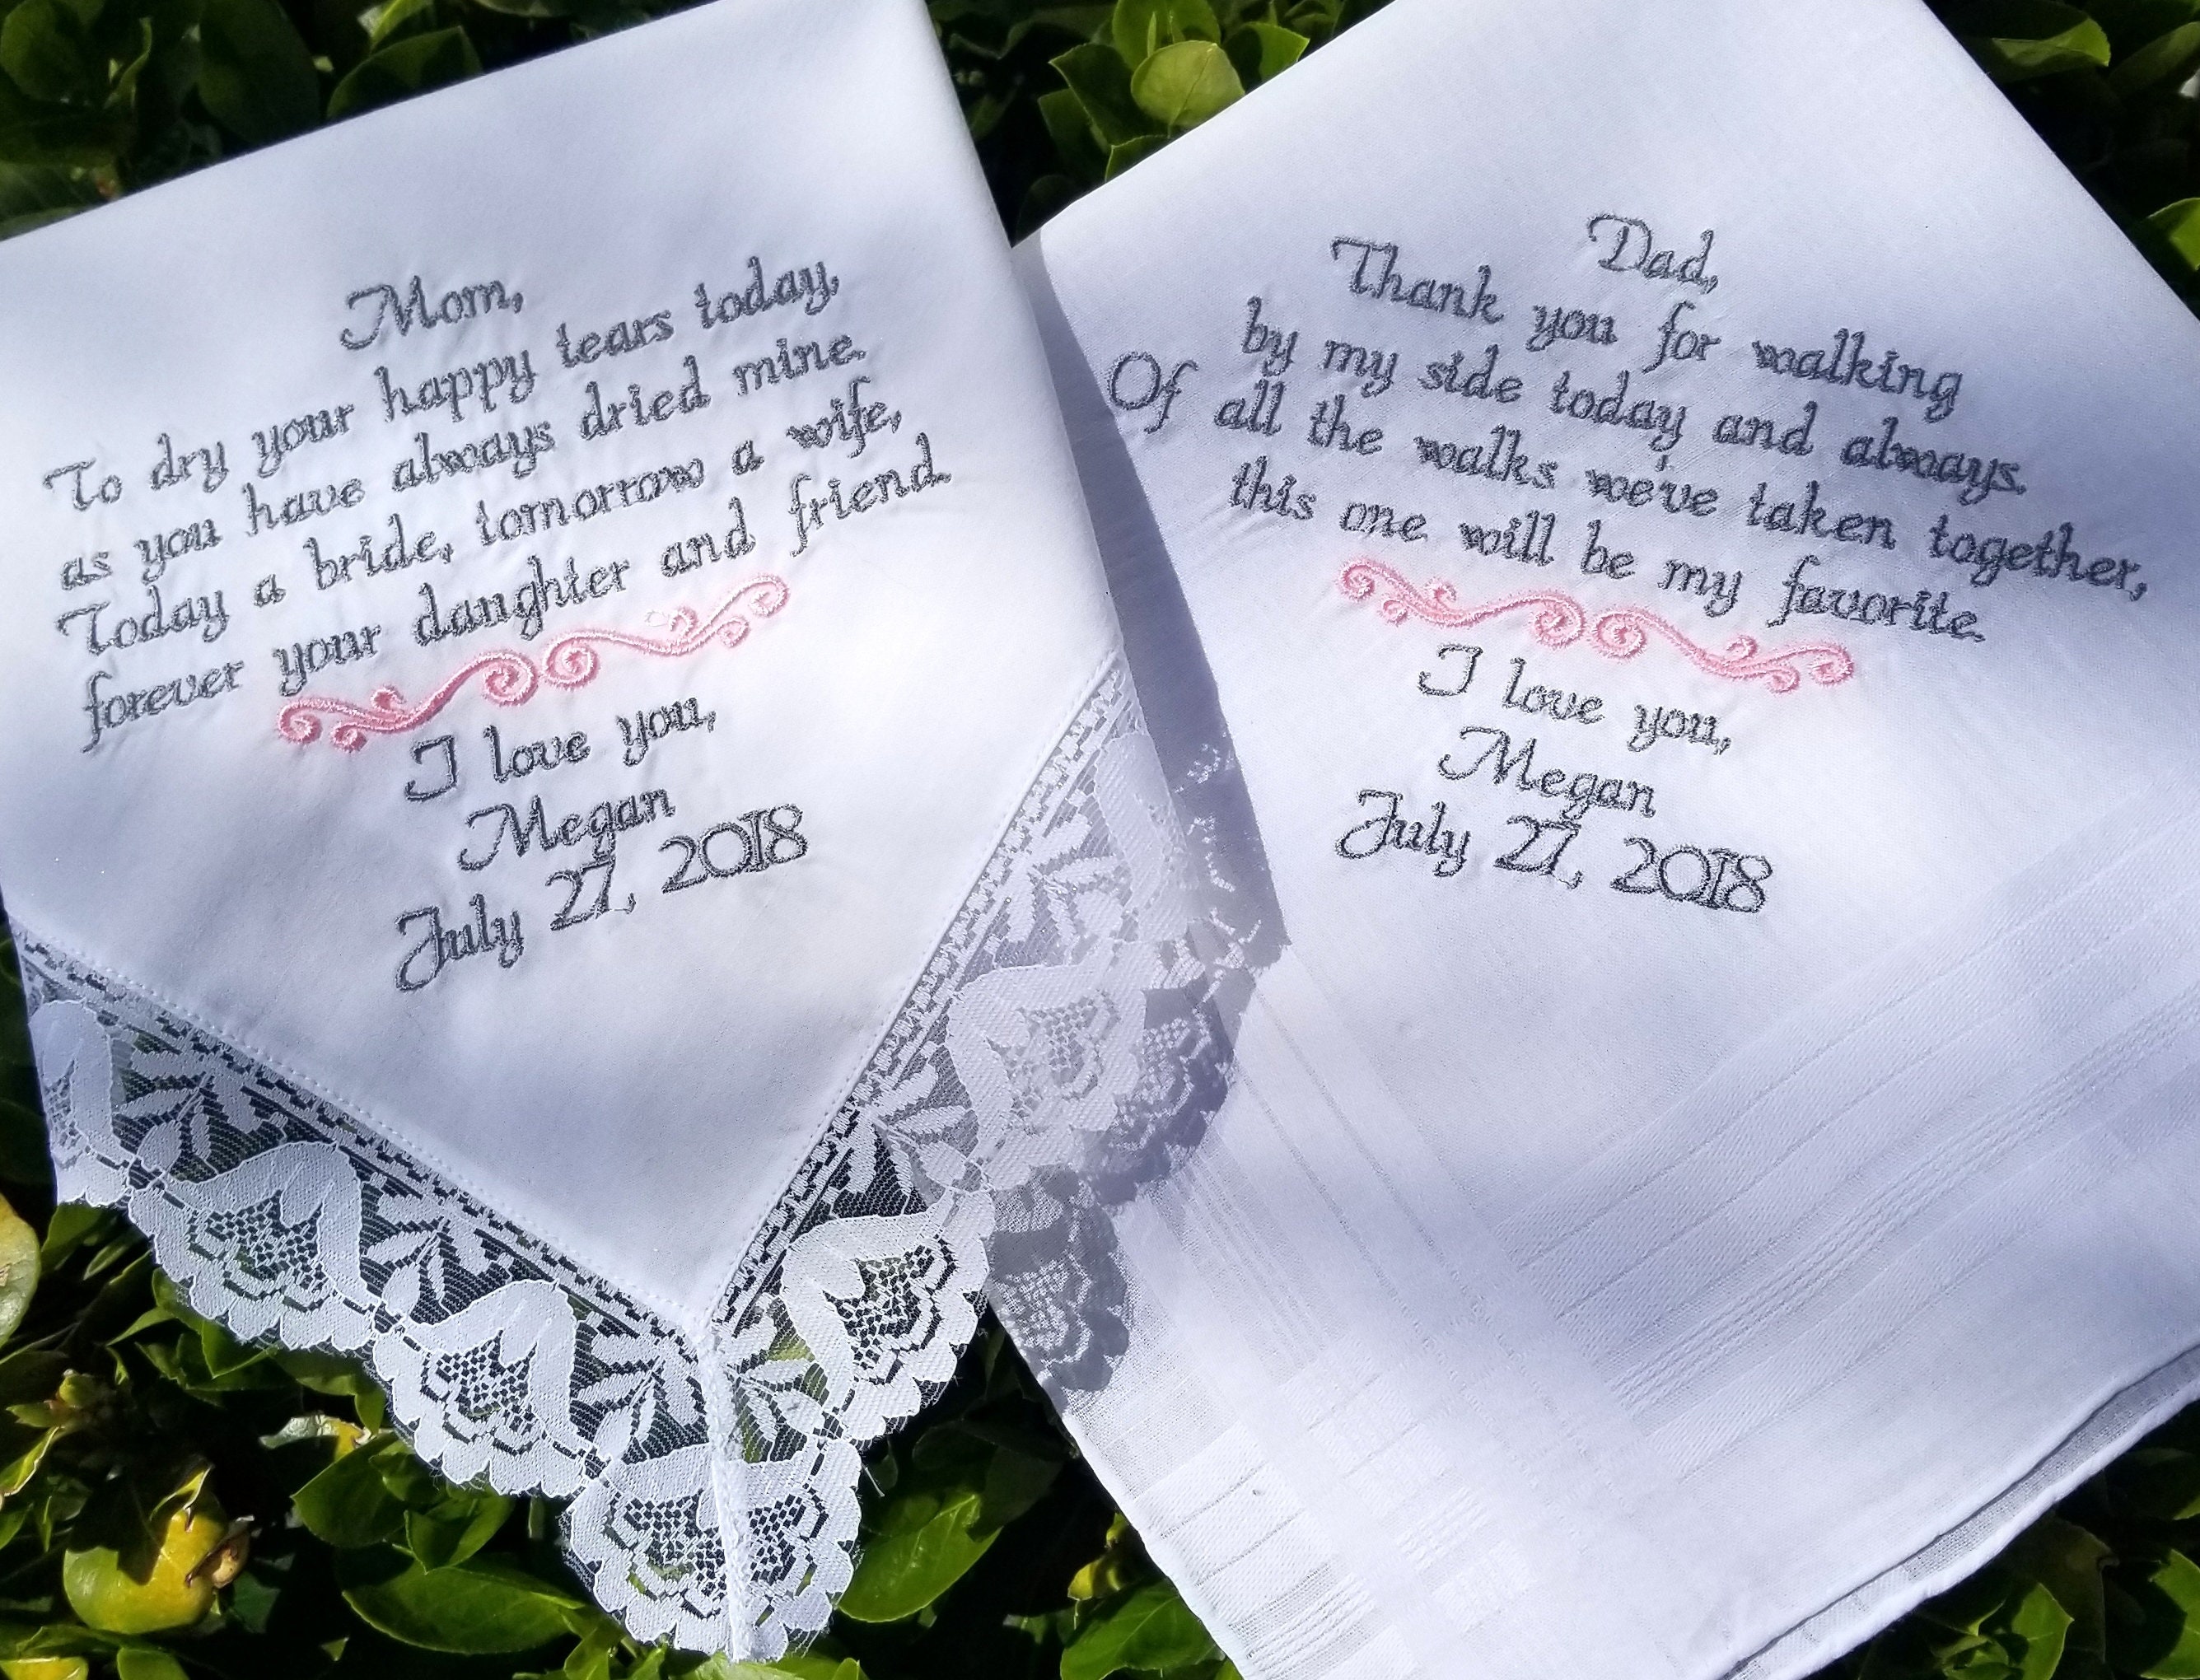 Mom,
To dry your happy tears today,
as you have always dried mine.
Today a bride, tomorrow a wife,
forever your daughter and friend.
I love you,
Megan
July 27, 2018
Dad,
Thank you for walking
by my side today and always.
Of all the walks we've taken together,
this one will be my favorite.
I love you,
Megan
July 27, 2018